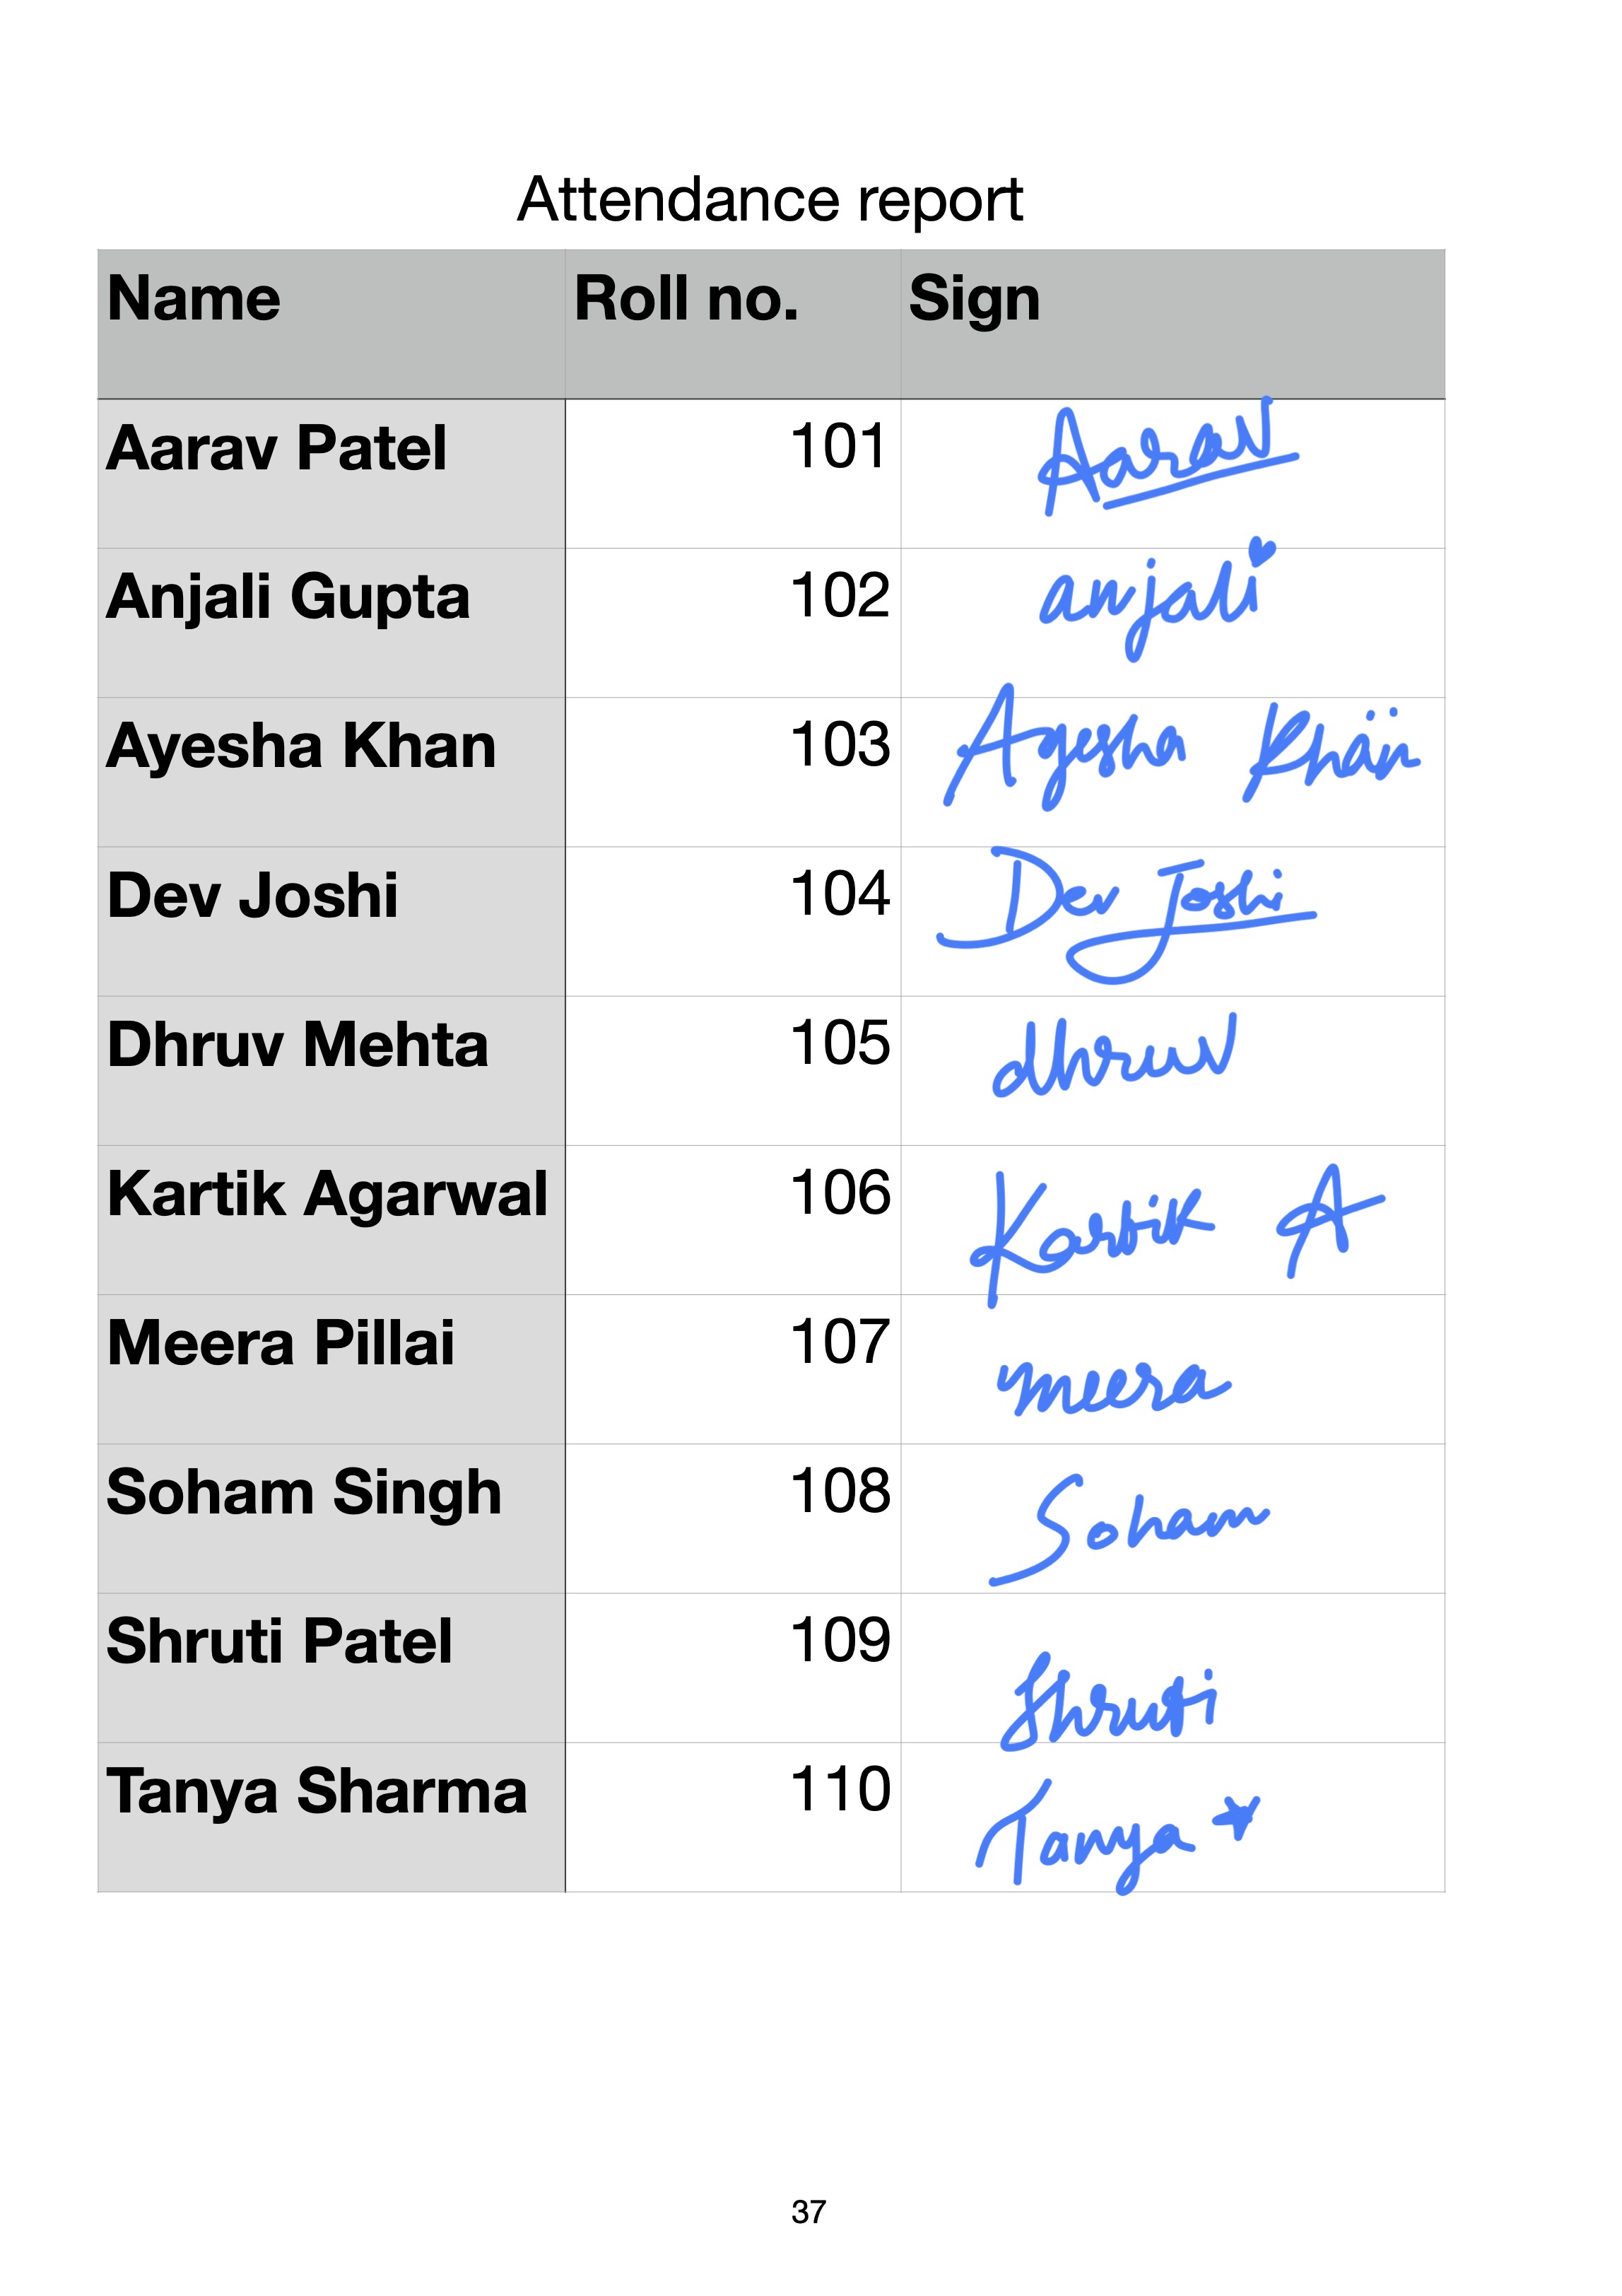 Attendance report
Name Roll no. Sign
Aarav Patel 101 Aarav
Anjali Gupta 102 anjali
Ayesha Khan 103 Ayesha Khan
Dev Joshi 104 Dev Joshi
Dhruv Mehta 105 dhruv
Kartik Agarwal 106 Kartik A
Meera Pillai 107 meera
Soham Singh 108 Soham
Shruti Patel 109 Shruti
Tanya Sharma 110 Tanya
37